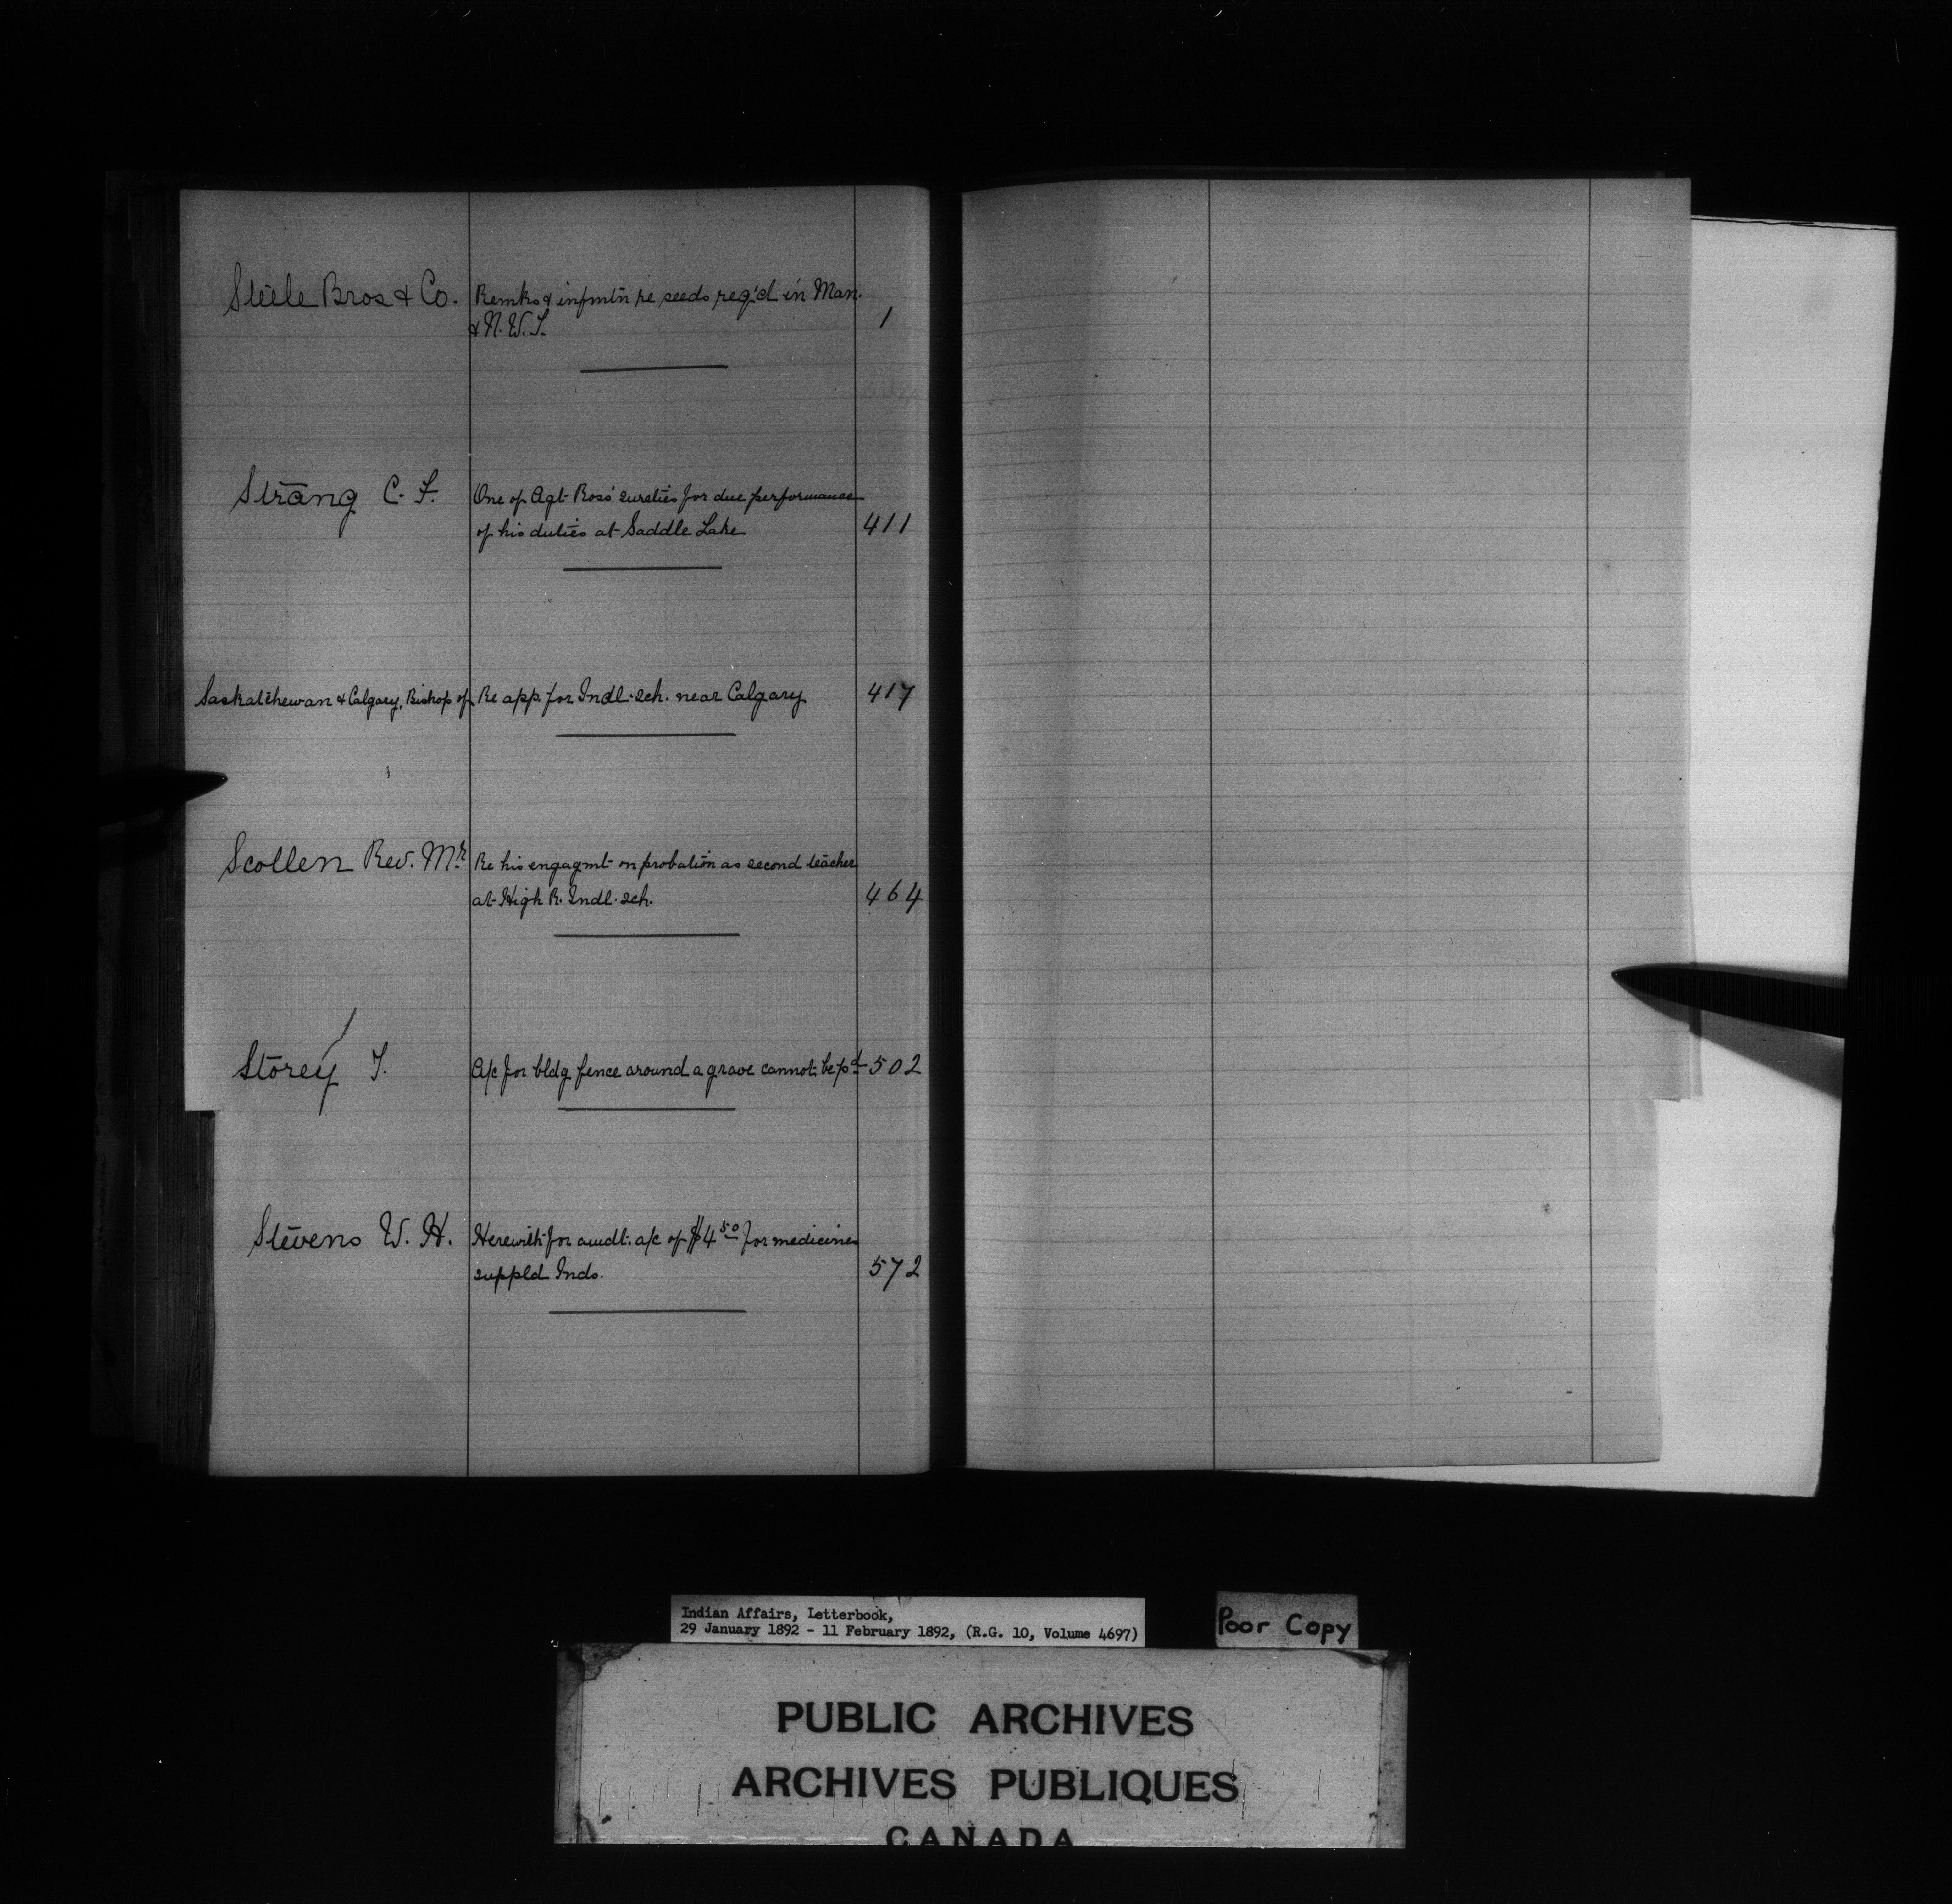 Steele Bros & Co. Remks & infmtn re seeds req'd in Man.
& N. W. T. 1
Strang C. F. One of Agt Ross' sureties for due performance
of his duties at Saddle Lake 411
Saskatchewan & Calgary, Bishop of Re app. for Indl. sch. near Calgary 417
Scollen Rev. Mr Re his engagmt on probation as second teacher
at High R. Indl. sch. 464
Storey T. A/c for bldg fence around a grave cannot be pd 502
Stevens W. H. Herewith for amdt. a/c of $4 50 for medicines
suppld Inds. 572
Indian Affairs, Letterbook,
29 January 1892 - 11 February 1892, (R.G. 10, Volume 4697)
Poor Copy
PUBLIC ARCHIVES
ARCHIVES PUBLIQUES
CANADA